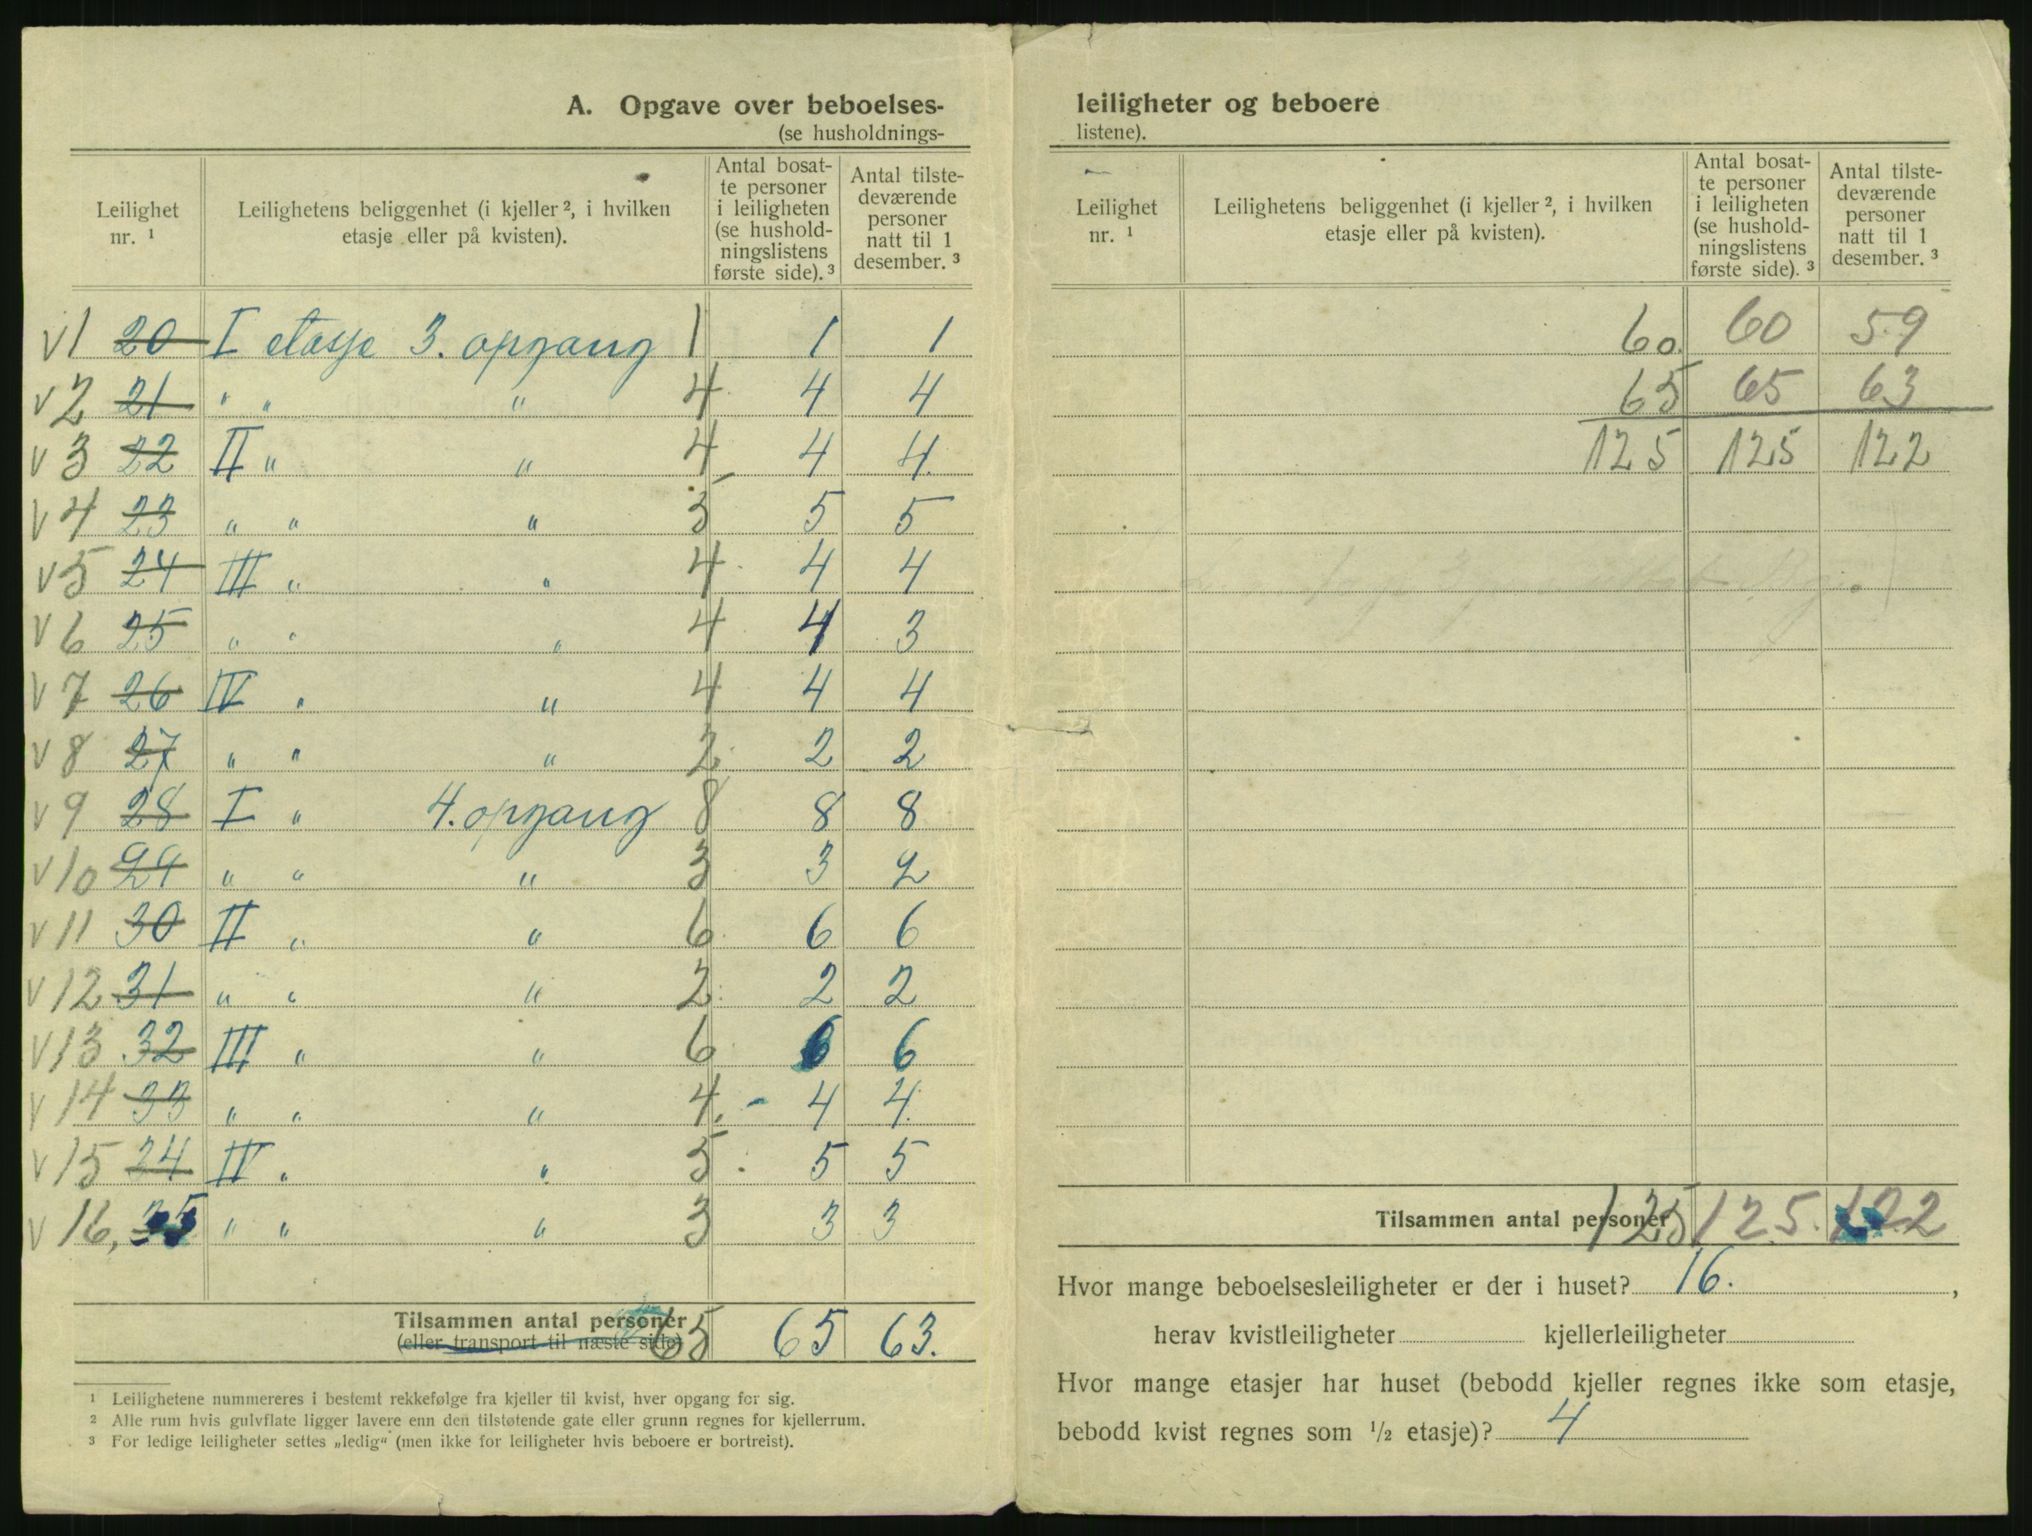 A. Opgave over beboelses-
(se husholdnings-
Leilighet nr. ¹
Leilighetens beliggenhet (i kjeller ², i hvilken etasje eller på kvisten).
Antal bosat-te personer i leiligheten (se hushold-ningslistens første side). ³
Antal tilste-deværende personer natt til 1 desember. ³
v 1 20 I etasje 3. opgang 1 1 1
v 2 21 " " " 4 4 4
v 3 22 II " " 4 4 4
v 4 23 " " " 5 5 5
v 5 24 III " " 4 4 4
v 6 25 " " " 4 4 3
v 7 26 IV " " 4 4 4
v 8 27 " " " 2 2 2
v 9 28 I " 4. opgang 8 8 8
v 10 29 " " " 3 3 2
v 11 30 II " " 6 6 6
v 12 31 " " " 2 2 2
v 13 32 III " " 6 6 6
v 14 33 " " " 4. - 4 4
v 15 34 IV " " 5 5 5
v 16, 35 " " " 3 3 3
Tilsammen antal personer 65 65 63.
(eller transport til næste side)
¹ Leilighetene nummereres i bestemt rekkefølge fra kjeller til kvist, hver opgang for sig.
² Alle rum hvis gulvflate ligger lavere enn den tilstøtende gate eller grunn regnes for kjellerrum.
³ For ledige leiligheter settes „ledig“ (men ikke for leiligheter hvis beboere er bortreist).
leiligheter og beboere
listene).
Leilighet nr. ¹
Leilighetens beliggenhet (i kjeller ², i hvilken etasje eller på kvisten).
Antal bosat-te personer i leiligheten (se hushold-ningslistens første side). ³
Antal tilste-deværende personer natt til 1 desember. ³
60. 60 59
65 65 63
125 125 122
Tilsammen antal personer 125 125. 122
Hvor mange beboelsesleiligheter er der i huset? 16. ,
herav kvistleiligheter kjellerleiligheter
Hvor mange etasjer har huset (bebodd kjeller regnes ikke som etasje,
bebodd kvist regnes som ½ etasje)? 4